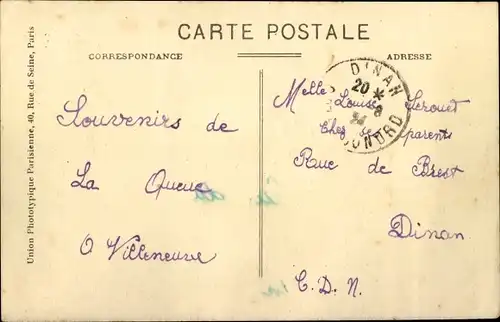 CARTE POSTALE
CORRESPONDANCE
ADRESSE
Union Phototypique Parisienne, 40, Rue de Seine, Paris
Souvenirs de
La Queue
O Villeneuve
DINAN
20 *
8
24
DU NORD
Melle Louise
Chez Se parents
Rue de Brest
Dinan
C. D. N.